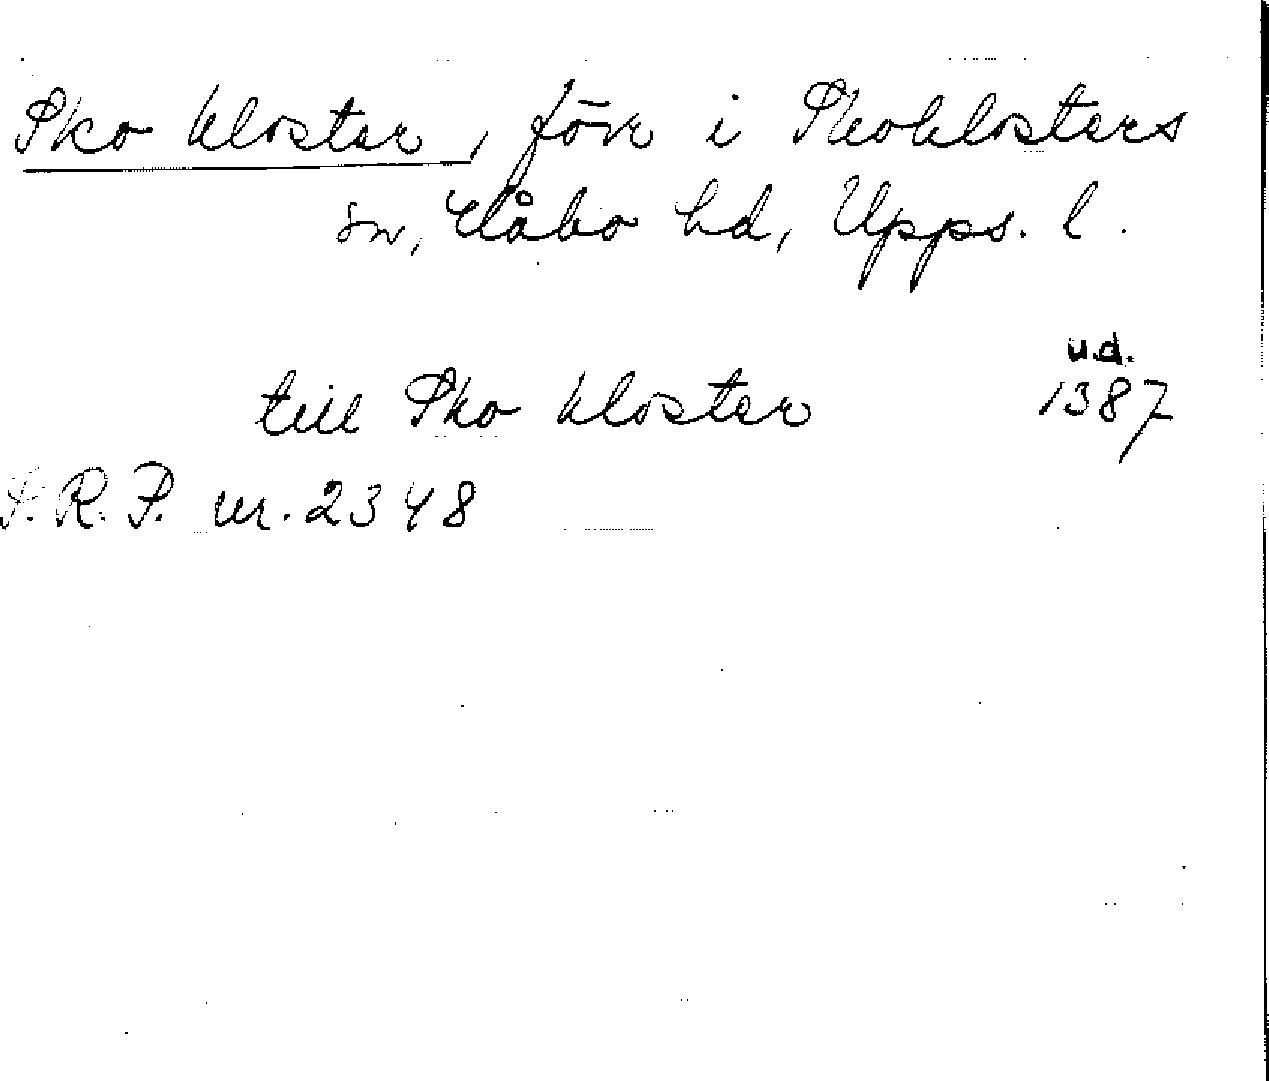 Sko kloster, förr i Skoklosters
sn, Håbo hd, Upps. l.
u.d.
till Sko kloster 1387
S.R.P. nr. 2348